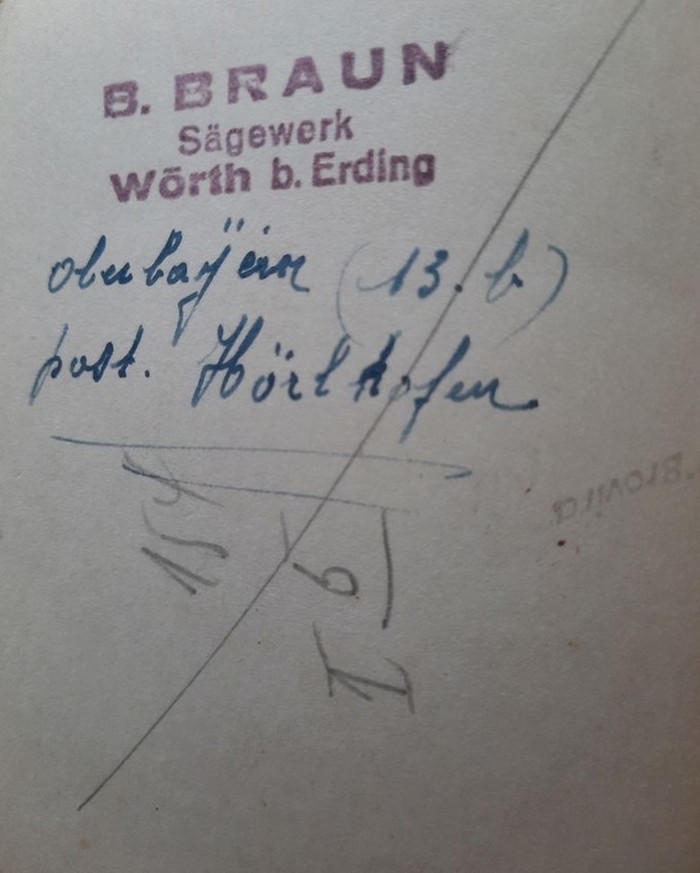 B. BRAUN
Sägewerk
Wörth b. Erding
oberbaÿern (13.b)
post. Hörlkofen
154
I 6